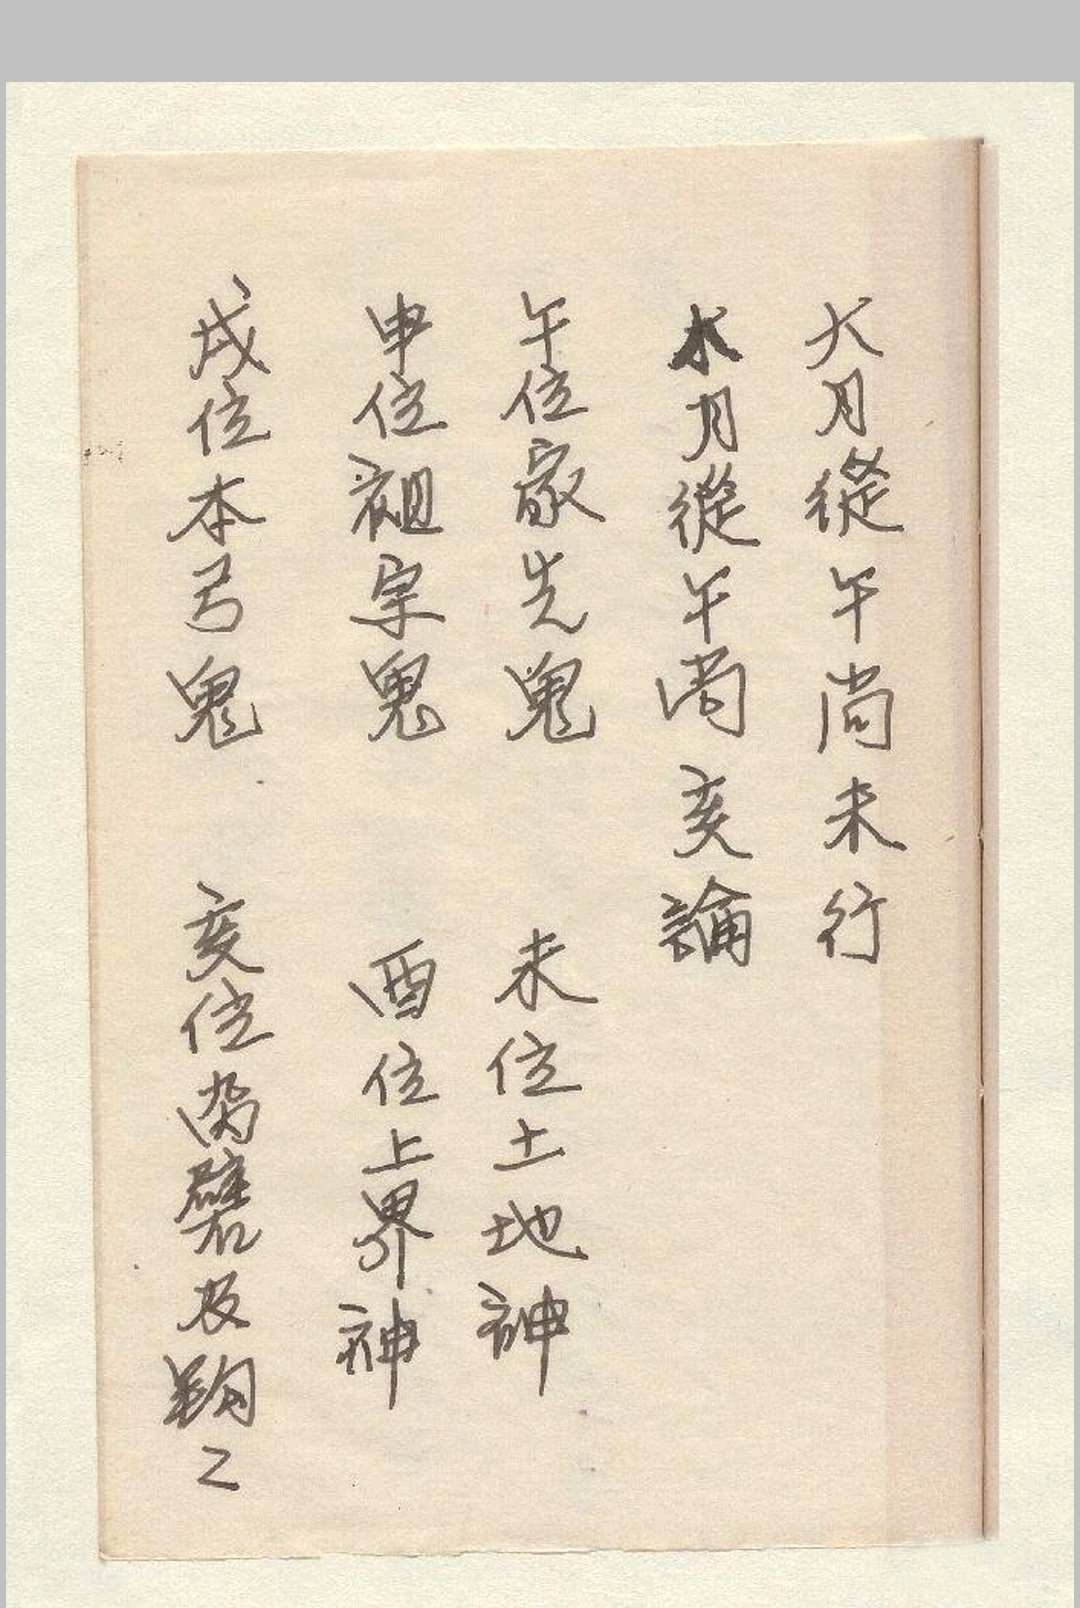 大月從午尚未行
水月從午尚亥論
午位家先鬼 未位土地神
申位祖宗鬼 酉位上界神
戌位本弓鬼 亥位